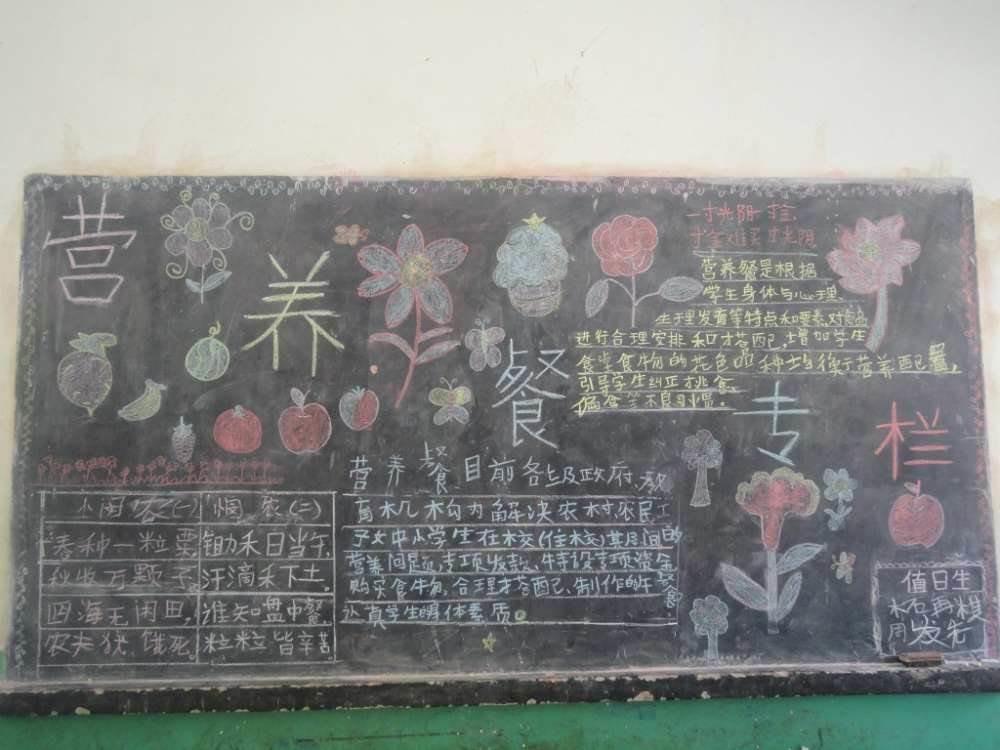 营养餐专栏
一寸光阴一寸金
寸金难买寸光阴
营养餐是根据
学生身体与心理、
生理发育等特点和要素,对食品
进行合理安排和搭配,增加学生
食堂食物的花色品种均衡营养配置,
引导学生纠正挑食
偏食等不良习惯.
营养餐目前各级政府、教
育机构为解决农村农民工
子女中小学生在校(住校)其间的
营养问题,专项发款、特设专项资金
购买食物,合理搭配、制作的午餐
学生身体素质。
悯农(一)
春种一粒粟
秋收万颗子,
四海无闲田,
农夫犹饿死。
悯农(二)
锄禾日当午,
汗滴禾下土,
谁知盘中餐
粒粒皆辛苦
值日生
再棋
周发先